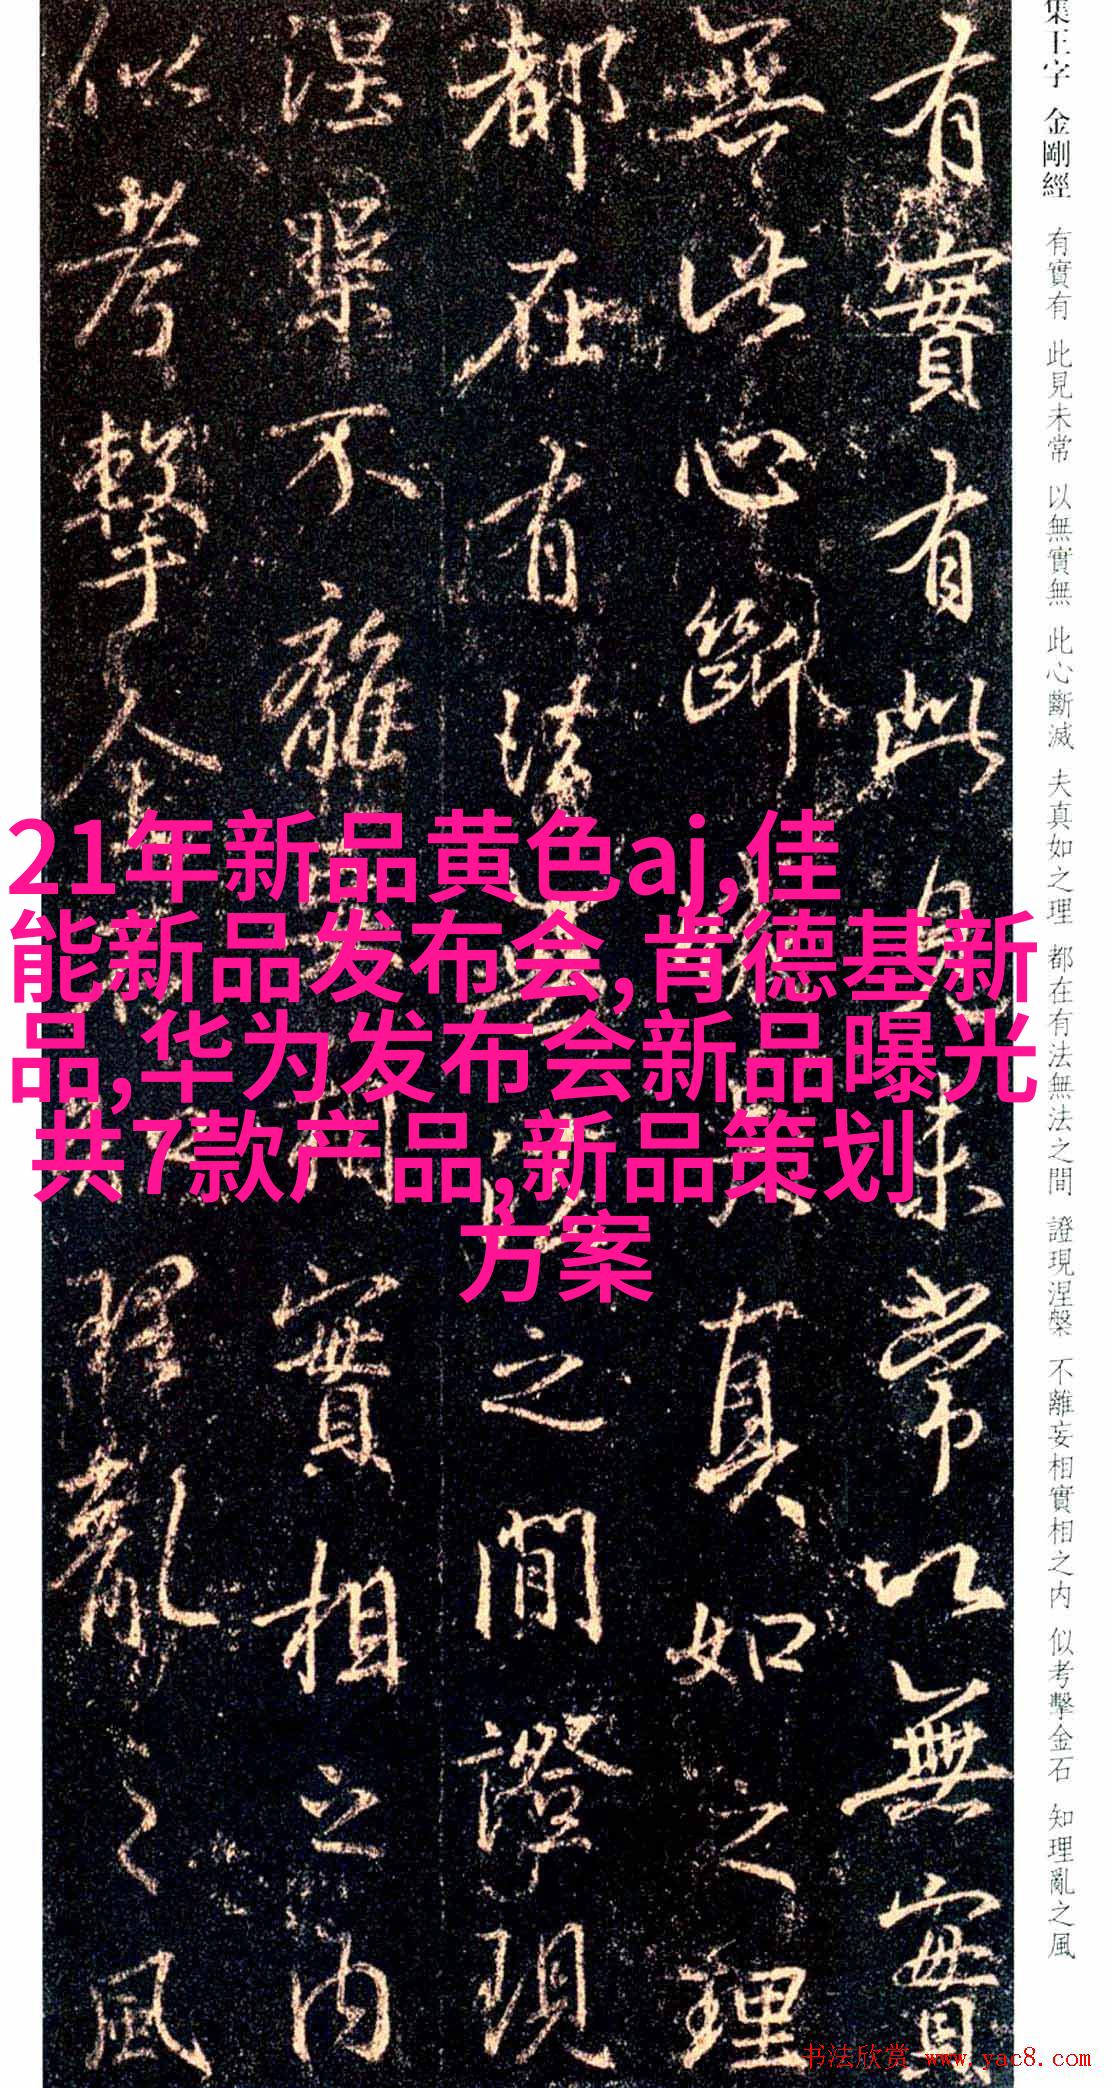 集王字 金剛經 有實有 此見未常 以無實無 此心斷滅 夫真如之理 都在有法無法之間 證現涅槃 不離妄相實相之内 似考擊金石 知理亂之風
有實有此見未常以無實
無此心斷滅夫真如之理
都在有法無法之間證現
涅槃不離相實相之内
似考擊金理亂之風
21年新品黄色aj,佳
能新品发布会,肯德基新
品,华为发布会新品曝光
共7款产品,新品策划
方案
书法欣赏 www.yac8.com